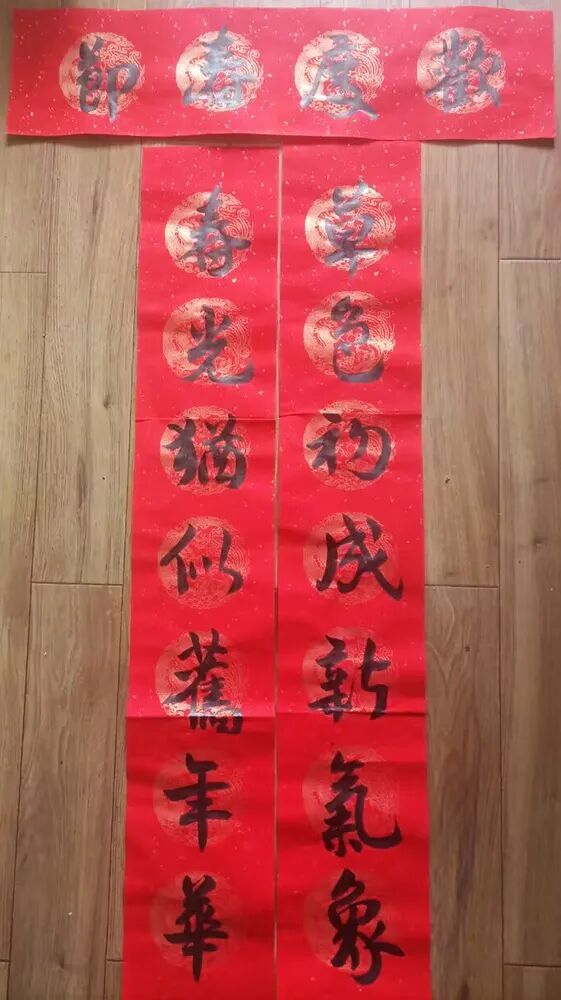 歡度春節
草色初成新氣象
春光猶似舊年華